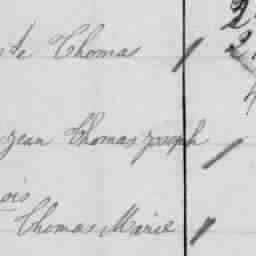 te Thomas
jean Thomas joseph
ois
Thomas Marie